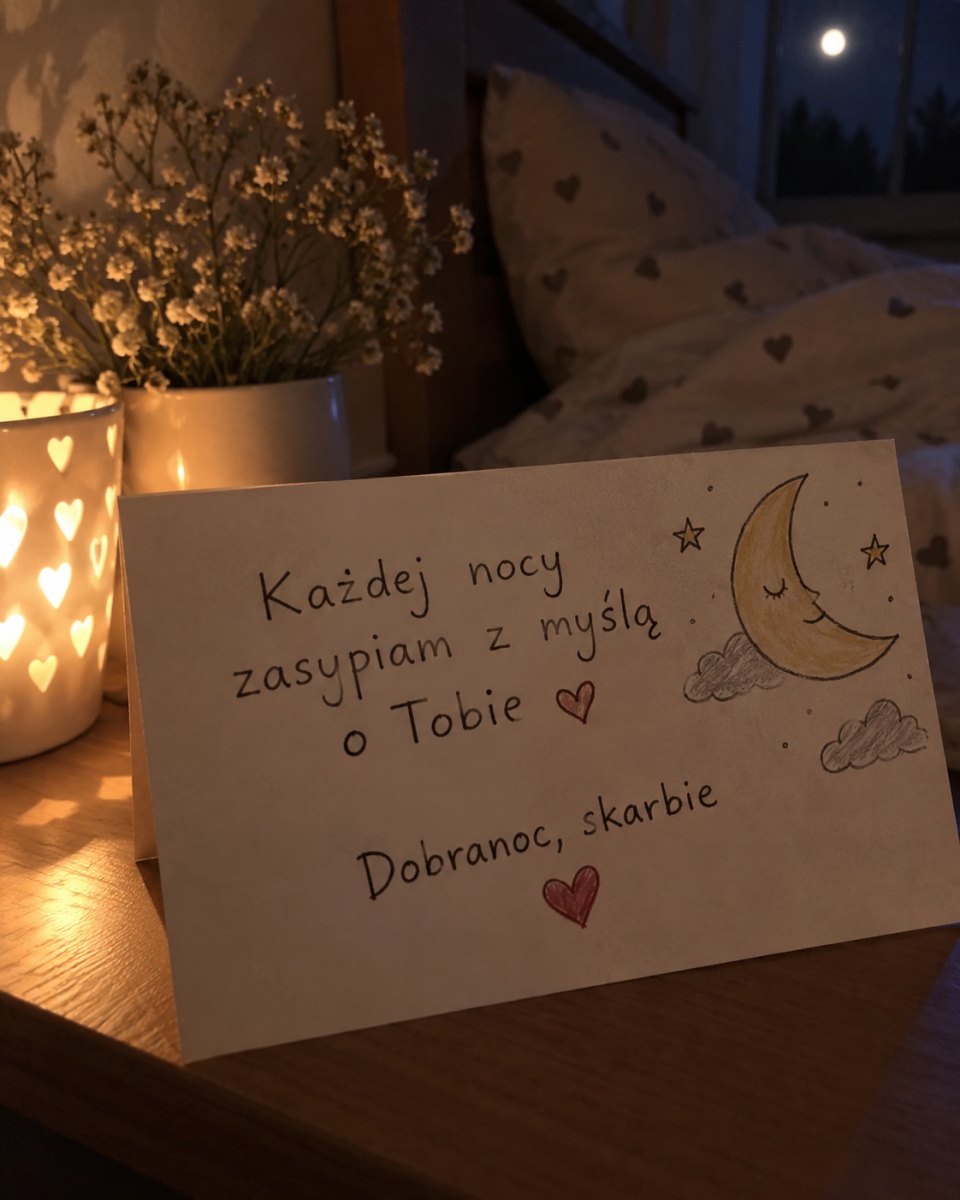 Każdej nocy
zasypiam z myślą
o Tobie ❤
Dobranoc, skarbie
❤